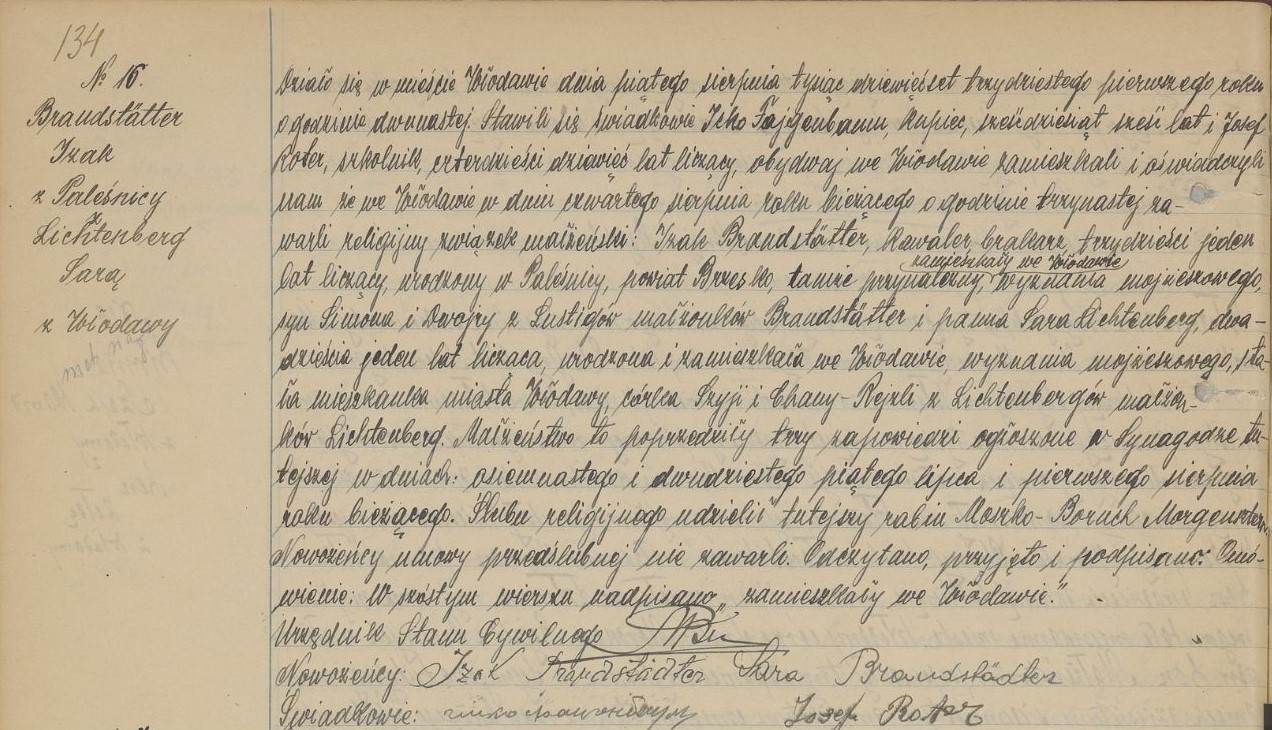 134
№ 16.
Brandstätter
Izak
z Paleśnicy
Lichtenberg
Sarą
z Włodawy
Działo się w mieście Włodawie dnia piątego sierpnia tysiąc dziewięćset trzydziestego pierwszego roku
o godzinie dwunastej. Stawili się świadkowie Icko Fajgenbaum, kupiec, sześćdziesiąt sześć lat i Josef
Roter, szkolnik, czterdzieści dziewięć lat liczący, obydwaj we Włodawie zamieszkali i oświadczyli
nam że we Włodawie w dniu czwartego sierpnia roku bieżącego o godzinie trzynastej za-
warli religijny związek małżeński: Izak Brandstätter, kawaler brakarz, trzydzieści jeden
zamieszkały we Włodawie
lat liczący, urodzony w Paleśnicy, powiat Brzesko, tamże przynależny, wyznania mojżeszowego,
syn Simona i Dwojry z Lustigów małżonków Brandstätter i panna Sara Lichtenberg, dwa-
dzieścia jeden lat licząca, urodzona i zamieszkała we Włodawie, wyznania mojżeszowego, sta-
ła mieszkanka miasta Włodawy, córka Szyji i Chany-Rejzli z Lichtenbergów małżon-
ków Lichtenberg. Małżeństwo to poprzedziły trzy zapowiedzi ogłoszone w Synagodze tu-
tejszej w dniach: osiemnastego i dwudziestego piątego lipca i pierwszego sierpnia
roku bieżącego. Ślubu religijnego udzielił tutejszy rabin Moszko-Boruch Morgensztern.
Nowożeńcy umowy przedślubnej nie zawarli. Odczytano, przyjęto i podpisano: Omó-
wienie: W szóstym wierszu nadpisano „zamieszkały we Włodawie."
Urzędnik Stanu Cywilnego
Nowożeńcy: Izak Brandstädter Sara Brandstädter
Świadkowie: Josef Roter